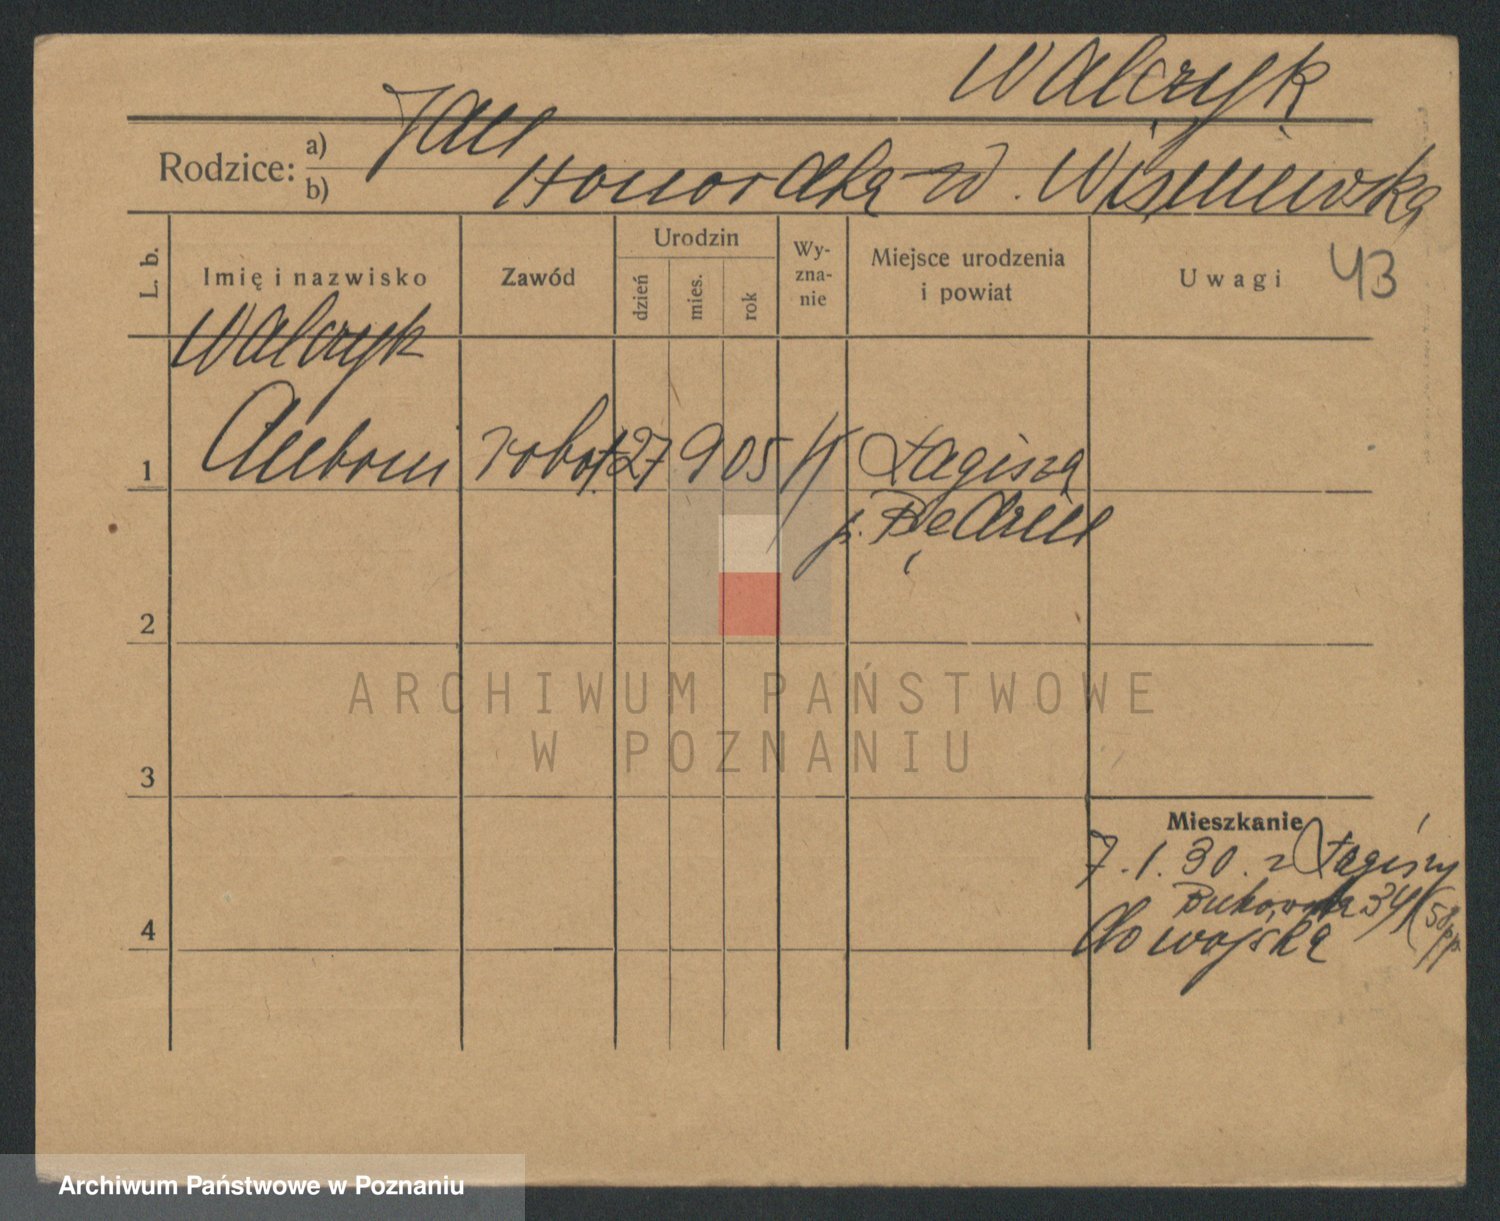 Walczyk
Rodzice: a) Jan
b) Honoratka z d. Wiśniewska
L. b. Imię i nazwisko Zawód Urodzin dzień mies. rok Wyznanie Miejsce urodzenia i powiat Uwagi 43
Walczyk
1 Antoni robot. 27 9 05 Łagisza
p. Będzin
2
ARCHIWUM PAŃSTWOWE
W POZNANIU
3
Mieszkanie
7.1.30. z Łagiszy
Bukowska 34 (58 pp.
4 do wojska
Archiwum Państwowe w Poznaniu